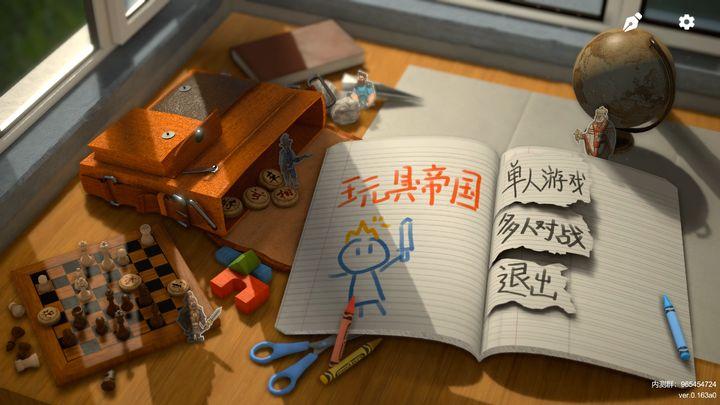 玩具帝国
单人游戏
多人对战
退出
内测群：965454724
ver.0.163a0